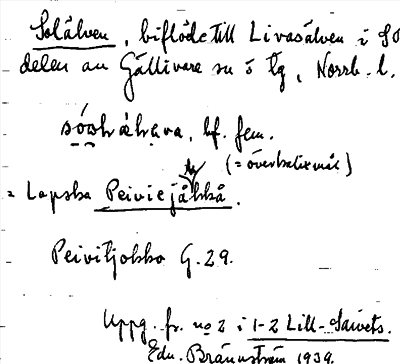 Solälven, biflöde till Livasälven i SO
delen av Gällivare sn o tg, Norrb. l.
bf. fem.
(= överkalixmål)
= Lapska Peiviejåkkå.
Peivitjokko G. 29.
Uppg. fr. no 2 i 1-2 Lill-Saivets.
Edv. Brännström 1939.